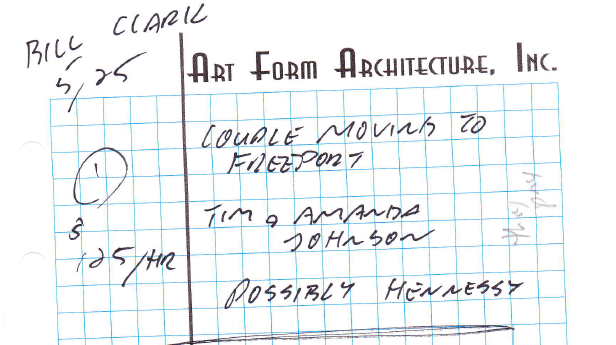 BILL CLARK
5/25
ART FORM ARCHITECTURE, INC.
COUPLE MOVING TO
FREEPORT
1
TIM & AMANDA
JOHNSON
$
125/HR
POSSIBLY HENNESSY